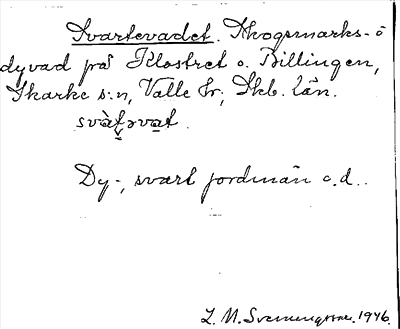 Svartevadet. Skogsmarks- o
dyvad på Klostret o. Billingen,
Skarke s:n, Valle hr, Skb. län.
Dy-, svart jordmån o.d..
L. M. Svenungsson. 1946.